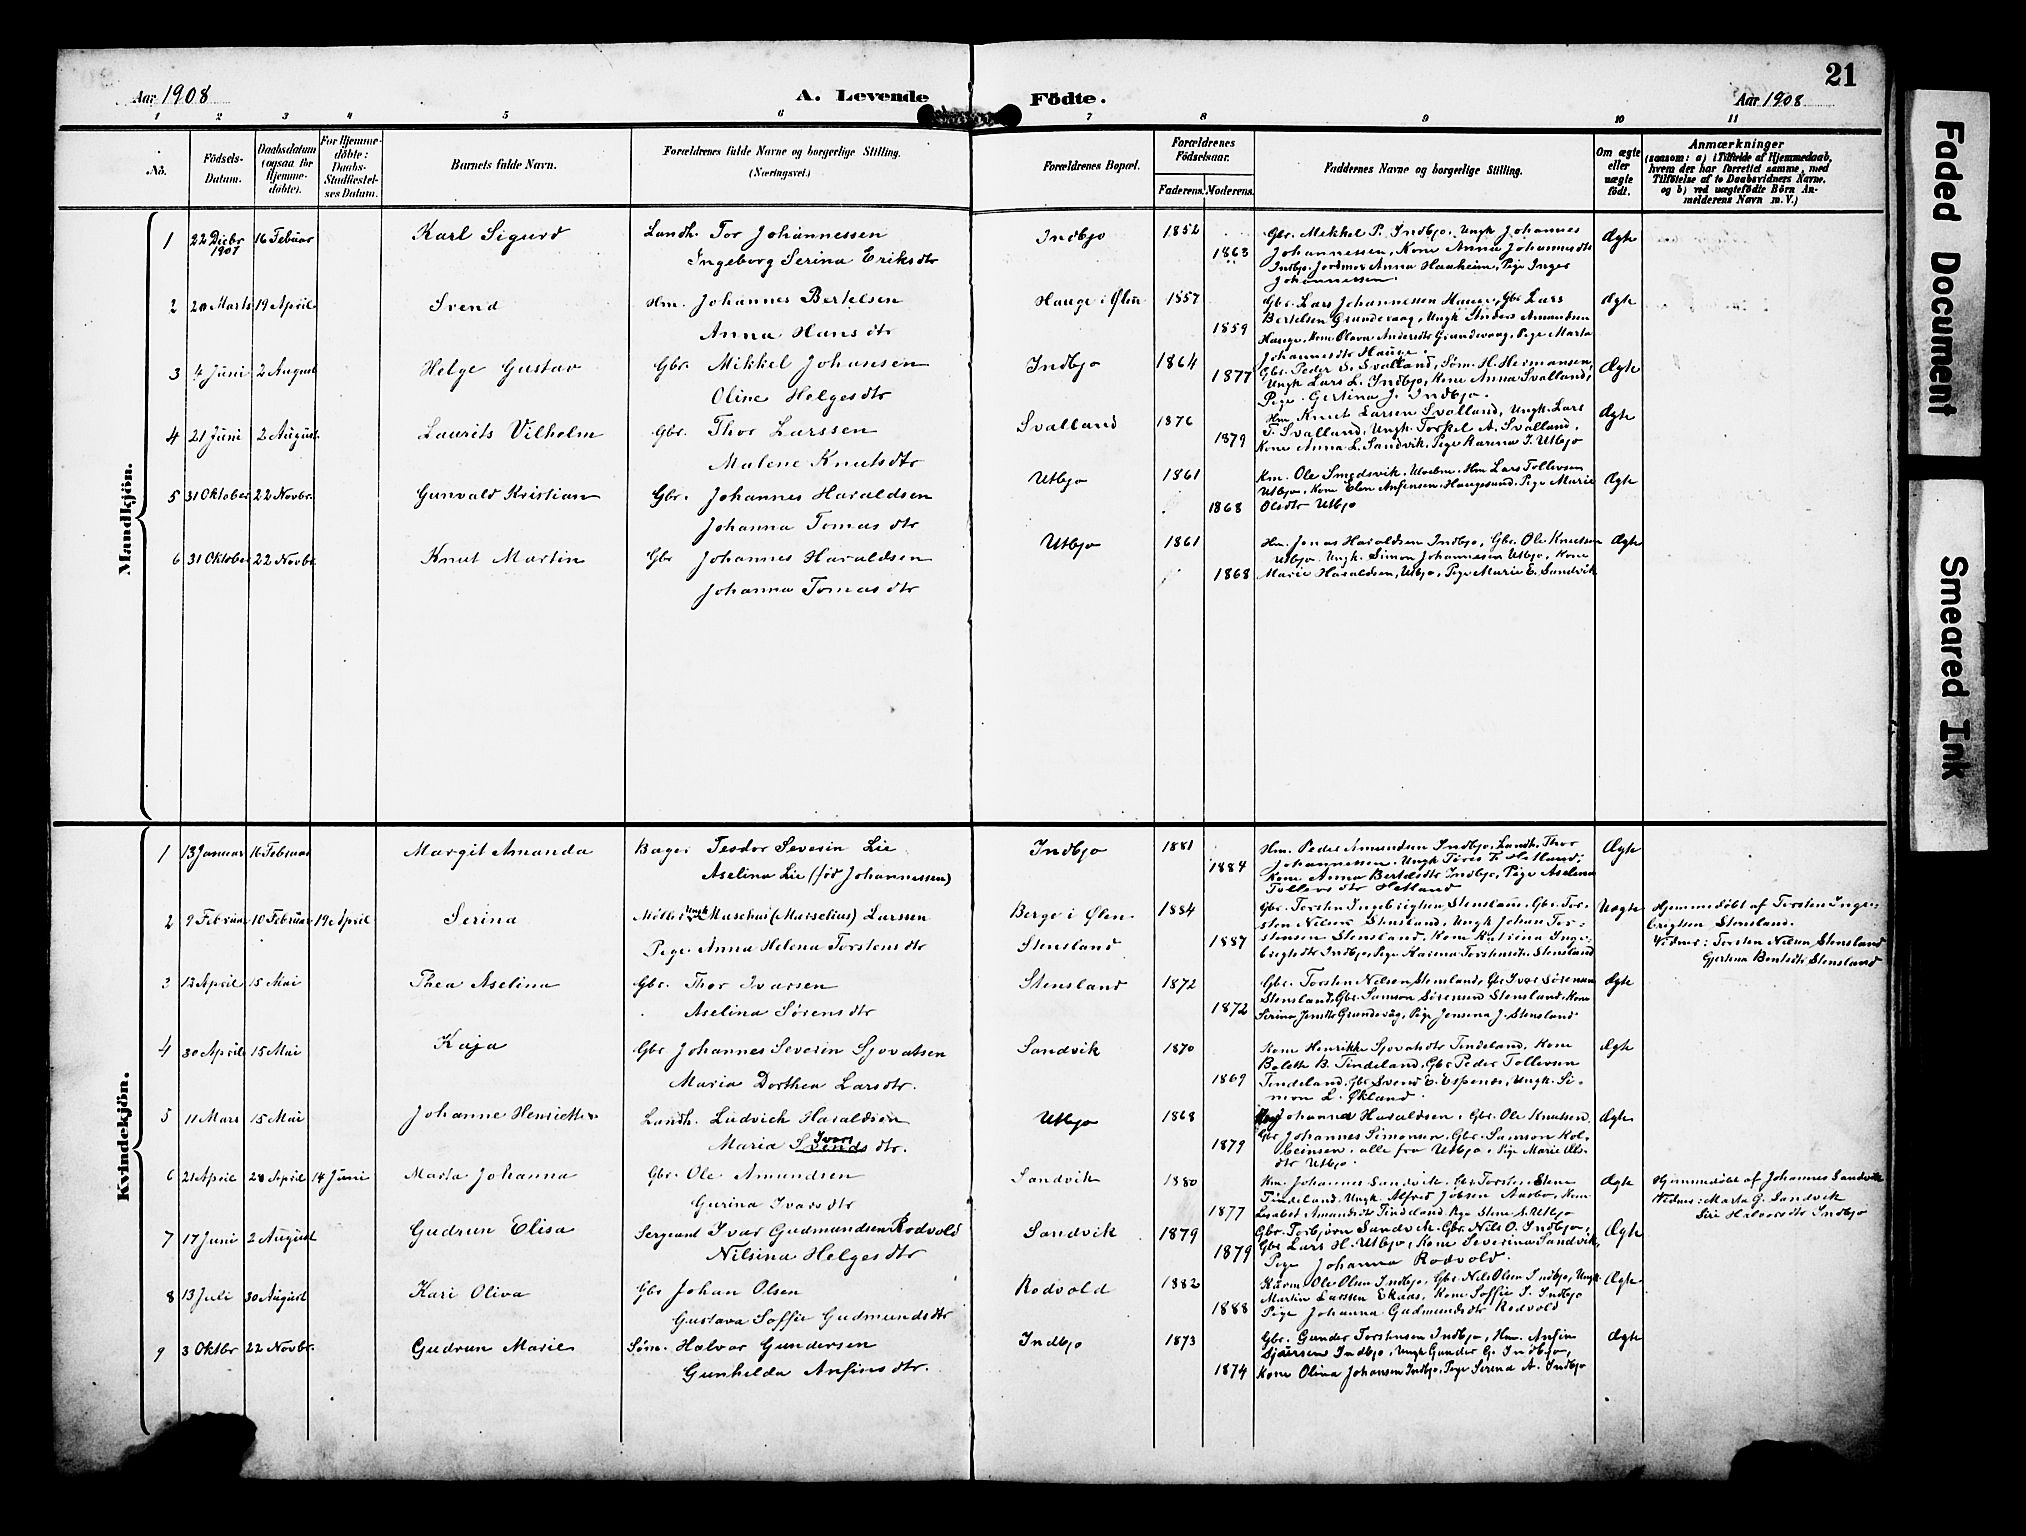 Aar 1908
A. Levende Fødte.
21
Aar 1908
1 2 3 4 5 6 7 8 9 10 11
No.
Fødsels-Datum.
Daabsdatum (ogsaa for Hjemmedøbte).
For Hjemmedöbte: Daabs-Stadfæstelses Datum.
Barnets fulde Navn.
Forældrenes fulde Navne og borgerlige Stilling. (Næringsvei.)
Forældrenes Bopæl.
Forældrenes Födselsaar.
Faderens. Moderens.
Faddernes Navne og borgerlige Stilling.
Om ægte eller uægte födt.
Anmærkninger
(saasom: a) i Tilfælde af Hjemmedaab,
hvem der har forrettet samme, med
Tilföielse af to Daabsvidners Navne.
og b) ved uægtefödte Börn An-
melderens Navn m. V.)
Mandkjön.
1 22 Decbr 1907 16 Febuar Karl Sigurd Landh. Tor Johannessen Indbjo 1852 Gbr. Mikkel P. Indbjo, Ungk Johannes Ægte
Ingeborg Serina Eriksdtr 1863 Johannessen, Kone Anna Johannesdtr
Indbjo. Jordmor Anna Haaheim, Pige Inger
Johannessen.
2 20 Marts 19 April Svend Hm. Johannes Bertelsen Hauge i Ølen 1857 Gbr. Lars Johannessen Hauge, Gbr Lars Ægte
Anna Hansdtr 1859 Bertelsen Grundevaag, Ungk Anders Amundsen
Hauge, Kone Olava Andersdtr Grundevaag, Pige Marta
Johannesdtr Hauge.
3 4 Juni 2 August Helge Gustav Gbr. Mikkel Johansen Indbjo 1864 Gbr. Peder S. Svalland, Søm. H. Hermansen, Ægte
Oline Helgesdtr 1877 Ungk Lars L. Indbjo, Kone Anna Svalland,
Pige Gertina J. Indbjo.
4 21 Juni 2 August Laurits Vilhelm Gbr. Thor Larssen Svalland 1876 Hm. Knut Larsen Svalland, Ungk. Lars Ægte
Malene Knutsdtr 1879 T. Svalland, Ungk. Torkel A. Svalland,
Kone Anna L. Sandvik, Pige Hanna I. Utbjo
5 31 Oktober 22 Novbr. Gunvald Kristian Gbr. Johannes Haraldsen Utbjo 1861 Km. Ole Smedsvik, Hm Lars Tollevsen Ægte
Johanna Tomasdtr 1868 Utbjo, Kone Elen Anfensen, Haugesund, Pige Marie
Olsdtr Utbjo
6 31 Oktober 22 Novbr. Knut Martin Gbr Johannes Haraldsen Utbjo 1861 Hm. Jonas Haraldsen Indbjo, Gbr. Ole Knutsen Ægte
Johanna Tomasdtr 1868 Utbjo, Ungk. Simon Johannesen Utbjo, Kone
Marie Haraldsen, Utbjo, Pige Marie E. Sandvik
Kvindekjön.
1 13 Januar 16 Februar Margit Amanda Bager Teodor Severin Lie Indbjo 1881 Hm. Peder Amundsen Indbjo, Landh. Thor Ægte
Aselina Lie (fød Johannessen) 1884 Johannessen, Ungk Tores T. Hetland,
Kone Anna Berteldtr Indbjo, Pige Aselena
Tollevsdtr Hetland
2 9 Februar 10 Februar 19 April Serina Møller Ungk Maschus (Marselius) Larssen Berge i Ølen 1884 Gbr. Torsten Ingebrigtsen Stensland, Gbr. Tor- Uægte Hjemmedøbt af Torsten Inge-
Pige Anna Helena Torstensdtr Stensland 1887 sten Nilsen Stensland, Ungk Johan Tor- brigtsen Stensland.
stensen Stensland, Kone Katrina Inge- Vidner: Torsten Nilsen Stensland
brigtsdtr Indbjo, Pige Karina Torstensdtr Stensland Gjertina Bentsdtr Stensland
3 12 April 15 Mai Thea Aselina Gbr. Thor Ivarsen Stensland 1872 Gbr. Torsten Nilsen Stensland, Gbr Ivar Sørensen Ægte
Aselina Sørensdtr 1872 Stensland, Gbr. Samson Sørensen Stensland, Kone
Serina Jensdtr Grundevåg, Pige Jensena J. Stensland
4 30 April 15 Mai Kaja Gbr Johannes Severin Sjovatsen Sandvik 1870 Kone Henrikke Sjovatsdtr Tindeland, Kone Ægte
Maria Dorthea Larsdtr. 1869 Bolethe B. Tindeland, Gbr Peder Tollevsen
Tindeland, Gbr Svend E. Espenes, Ungk. Si-
mon L. Økland.
5 11 Mars 15 Mai Johanne Henriette Landh. Ludvich Haraldsen Utbjo 1868 Johannes Haraldsen, Gbr. Ole Knutsen, Ægte
Maria Svends Ivarsdtr. 1879 Gbr Johannes Simonsen, Gbr. Samson Kol-
beinsen, alle fra Utbjo, Pige Marie Ols-
dtr Utbjo.
6 21 April 28 April 14 Juni Marta Johanna Gbr. Ole Amundsen Sandvik 1880 Km. Johannes Sandvik, Gbr Torsten Stene Ægte Hjemmedøbt af Johannes Sandvik
Gurina Ivarsdtr 1877 Tindeland, Ungk Alfred Jobsen Aarbo, Kone Vidner: Marta G. Sandvik
Lisabet Amundsdtr Tindeland, Pige Stene S. Utbjo Siri Halvorsdtr Indbjo
7 17 Juni 2 August Gudrun Elisa Sergeant Ivar Gudmundsen Rodvold Sandvik 1879 Gbr. Torbjørn Sandvik, Gbr. Nils O. Indbjo, Ægte
Nilsina Helgesdtr 1879 Gbr Lars H. Utbjo, Kone Severina Sandvik,
Pige Johanna Rodvold.
8 13 Juli 30 August Kari Oliva Gbr Johan Olsen Rodvold 1882 Ole Olsen Indbjo, Gbr. Nils Olsen Indbjo, Ungk Ægte
Gustava Soffie Gudmundsdtr 1888 Martin Larssen Ekaas, Kone Soffie T. Indbjo
Pige Johanna Gudmundsdtr Rodvold
9 3 Oktbr 22 Novbr. Gudrun Marie Søm. Halvor Gundersen Indbjo 1873 Gbr. Gunder Torstensen Indbjo, Hm. Anfin Ægte
Gunhilda Anfinsdtr. 1874 Sjursen Indbjo, Ungk Gunder G. Indbjo,
Kone Olina Johansen Indbjo, Pige Serena A. Indbjo
Faded Document
Smeared Ink